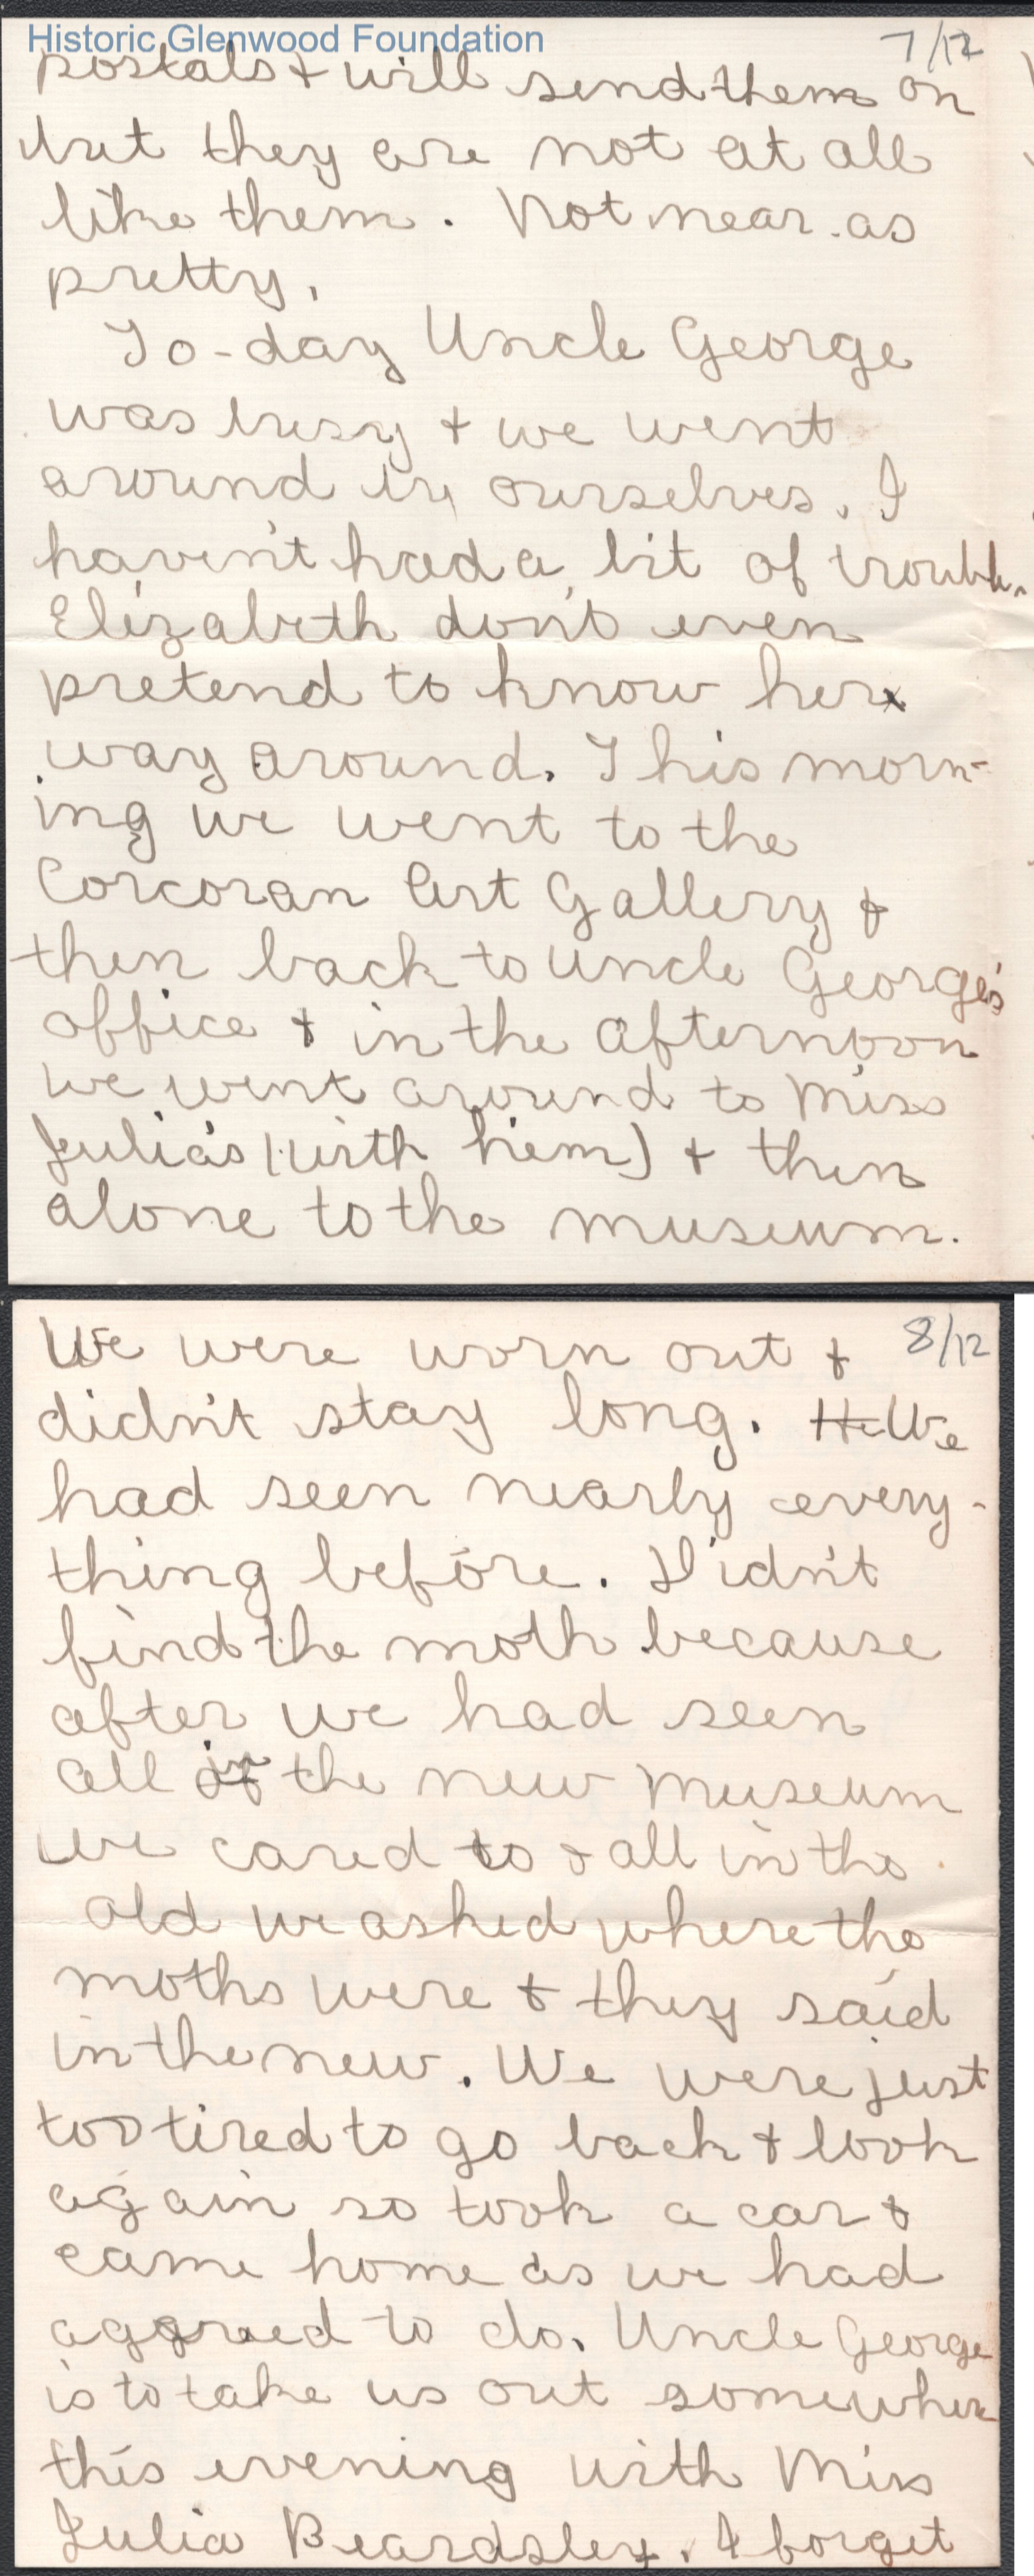 Historic Glenwood Foundation
7/12
postals + will send them on
but they are not at all
like them. Not near as
pretty.
To-day Uncle George
was busy + we went
around by ourselves. I
haven't had a bit of trouble.
Elizabeth don't even
pretend to know her
way around. This morn-
ing we went to the
Corcoran Art Gallery &
then back to Uncle George's
office + in the afternoon
we went around to Miss
Julia's (with him) + then
alone to the museum.
8/12
We were worn out &
didn't stay long. He We
had seen nearly every-
thing before. Didn't
find the moth because
after we had seen
all in the new Museum
we cared to & all in the
old we asked where the
moths were & they said
in the new. We were just
too tired to go back & look
again so took a car &
came home as we had
aggreed to do. Uncle George
is to take us out somewhere
this evening with Miss
Julia Beardsley. I forget